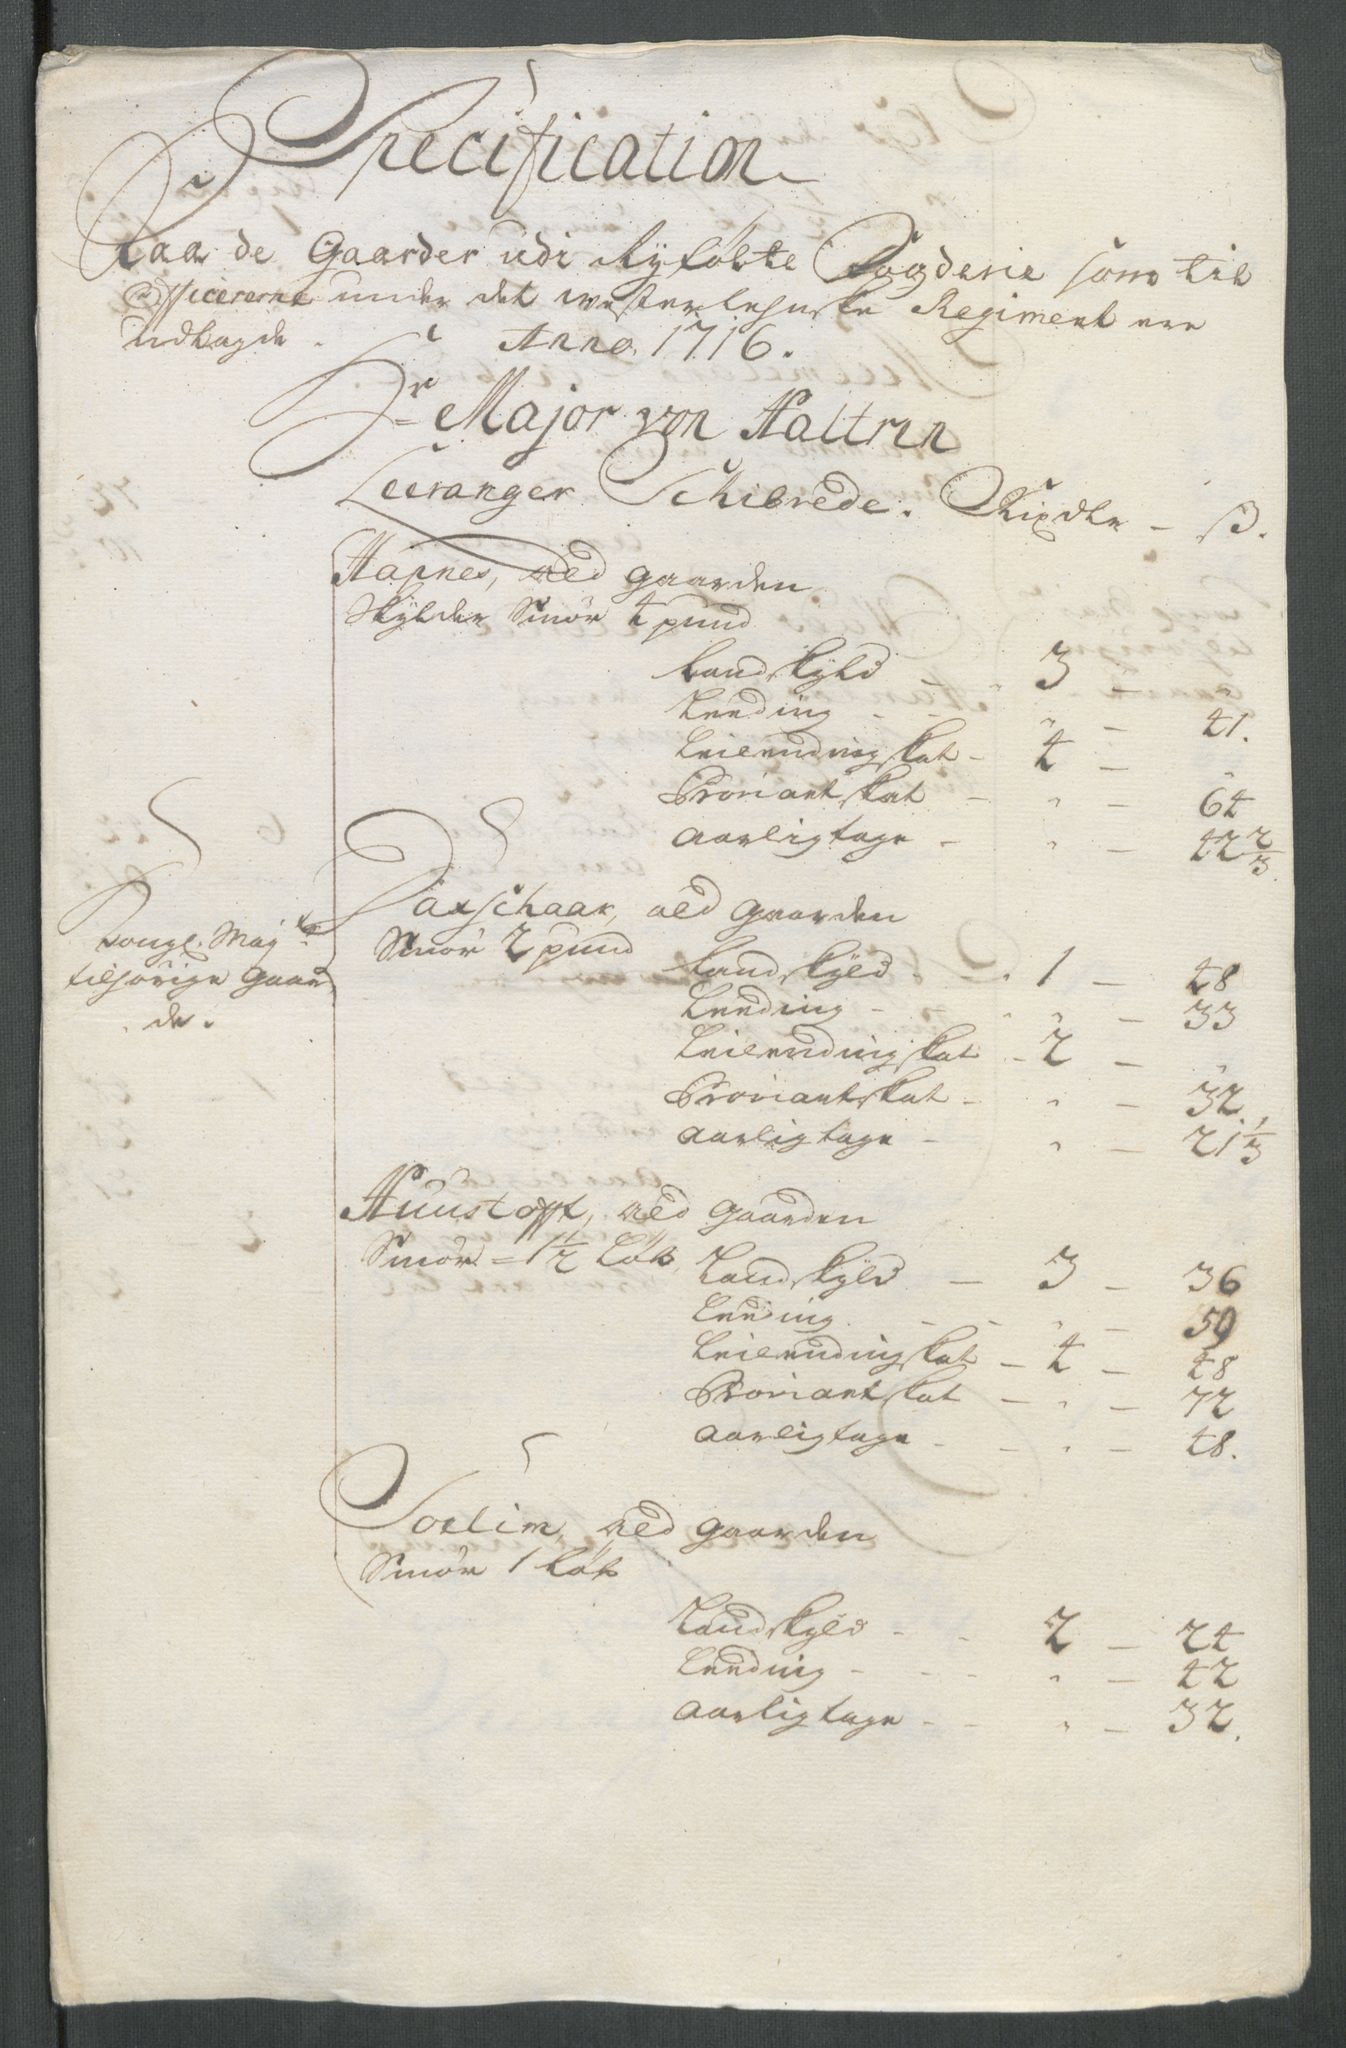 Specification
Paa de Gaarder udi Ryfølcke Fogderie som til
Officererne under det westerlehnske Regiment ere
udtagde. Anno 1716.
Hr Major von Haltrin
Leeranger Schibrede. Rixdlr - ß.
Hapnes, øed gaarden
Skylder Smör 4 pund
Landskyld - 3 - "
Leeding - " - 41.
Leilendingskat - 4 - "
Proviantskat - " - 64
Aarligtage - " - 42 2/3.
Kongl. Mayts
tilhørige Gaar
de.
Saxschaar, øed gaarden
Smör 2 pund
Landskyld - 1 - 48
Leeding - " - 33
Leilendingskat - 2 - "
Proviantskat - " - 32.
Aarligtage - " - 21 1/3
Huustofft, øed gaarden
Smör - 1 1/2 Løb. Landskyld - 3 - 36
Leeding - " - 59
Leilendingskat - 4 - 48
Proviantskat - " - 72
Aarligtage - " - 48.
Soelim, øed gaarden
Smör 1 Løb
Landskyld - 2 - 24
Leeding - " - 42
Aarligtage - " - 32.